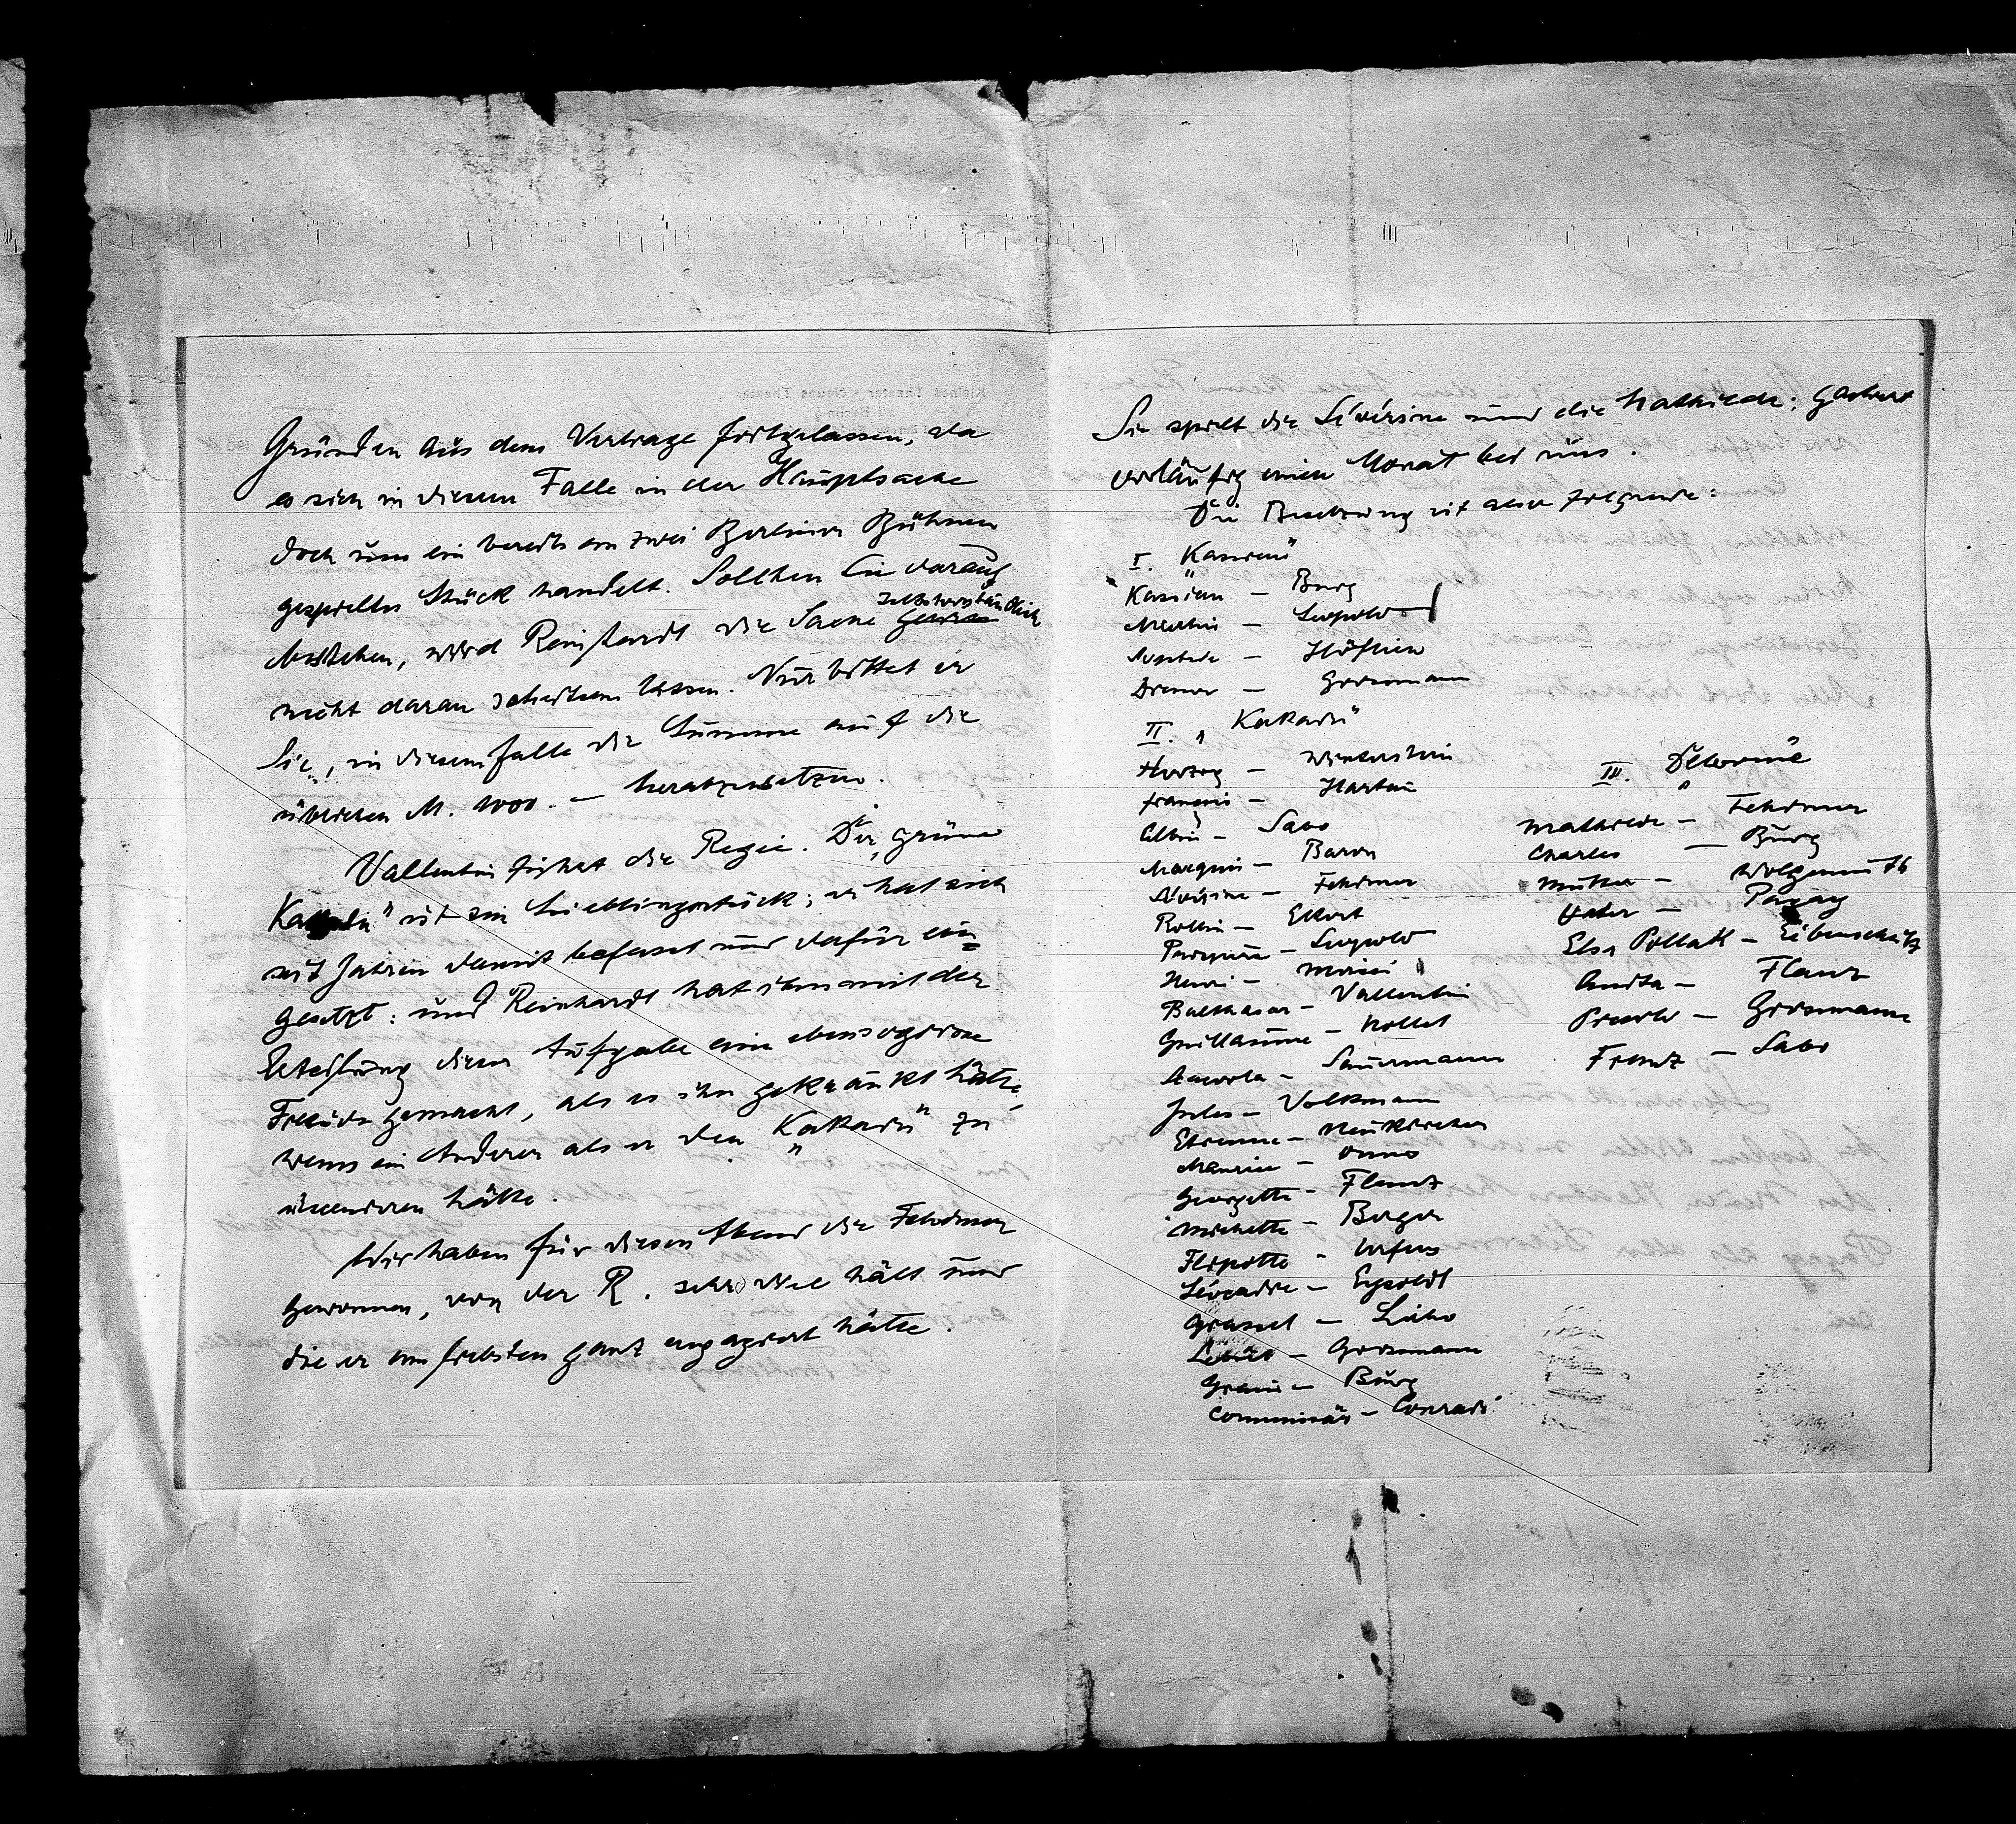 Gründen aus dem Vertrage fortgelassen, da
es sich in diesem Falle in der Hauptsache
doch um ein bereits an zwei Berliner Bühnen
gespieltes Stück handelt. Sollten Sie darauf
selbstverständlich
bestehen, wird Reinhardt die Sache
nicht daran scheitern lassen. Nur bittet er
Sie, in diesem Falle die Summe auf die
üblichen M. 1000.– herabzusetzen.
Vallentin führt die Regie. Der „grüne
Kakadu" ist sein Lieblingsstück; er hat sich
seit Jahren damit befasst und dafür ein=
gesetzt: und Reinhardt hat ihm mit der
Erteilung dieser Aufgabe eine ebensogrosse
Freude gemacht, als es ihn gekränkt hätte,
wenn ein Anderer als er den „Kakadu" zu
inscenieren hätte.
Wir haben für diesen Abend die Fehdmer
gewonnen, von der R. sehr viel hält und
die er am liebsten ganz engagiert hätte.
Sie spielt die Séverine und die Mathilde; gastiert
vorläufig einen Monat bei uns.
Die Besetzung ist also folgende:
I. „Kassian"
Kassian – Burg
Martin – Leopold
Sophie – Höflich
Diener – Grossmann
II. „Kakadu"
Herzog – Winterstein
François – Hartau
Albin – Sabo
Marquis – Baron
Séverine – Fehdmer
Rollin – Ekert
Prospère – Leopold
Henri – Moissi
Balthasar – Vallentin
Guillaume –
Scaevola – Sauermann
Jules – Volkmann
Etienne – Neukirchen
Maurice – Onno
Georgette – Flanz
Michette – Berger
Flipotte –
Léocadie – Eysoldt
Grasset – Licho
Lebrêt – Grossmann
Grain – Burg
Commissär – Conradi
III. „Dilemma"
Mathilde – Fehdmer
Charles – Burg
Mutter – Wolgemuth
Vater – Pagay
Elsa Pollak – Eibenschütz
– Flanz
– Grossmann
Franz – Sabo